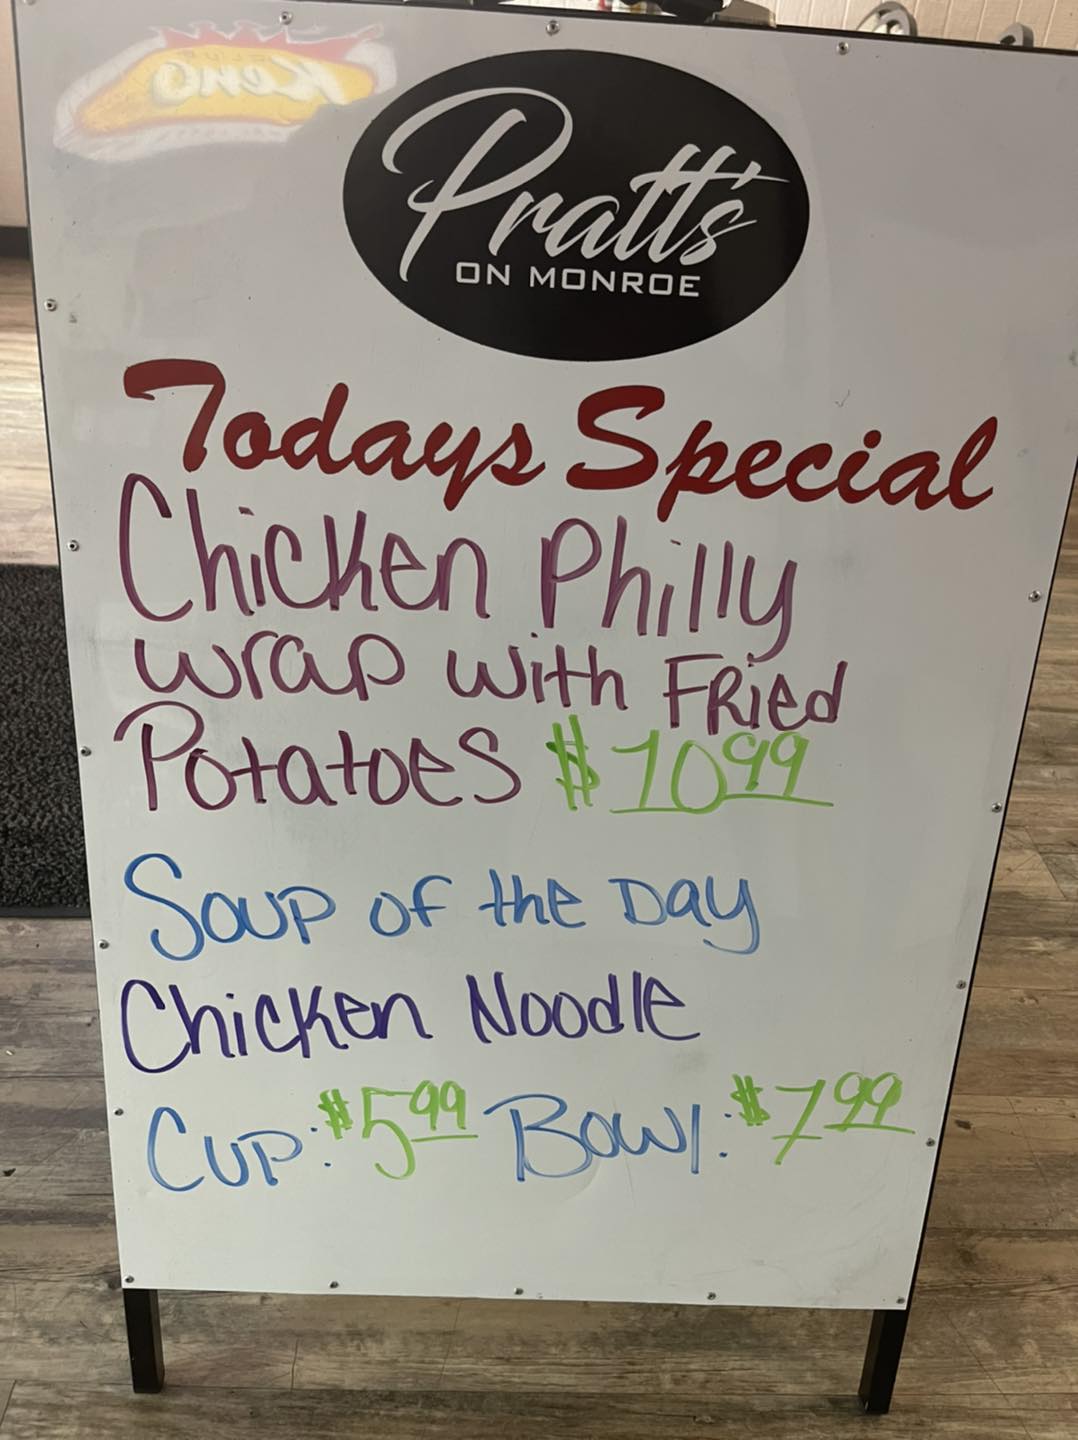 Keno
Pratt's
ON MONROE
Todays Special
Chicken Philly
wrap with Fried
Potatoes $10.99
Soup of the Day
Chicken Noodle
Cup: $5.99 Bowl: $7.99